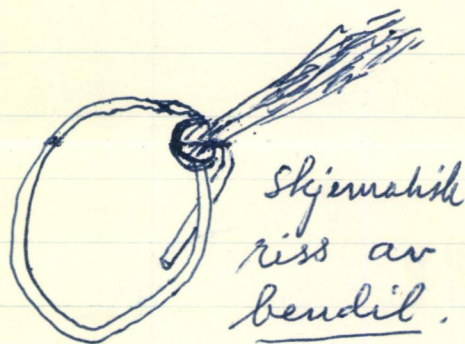 Skjematisk
riss av
bendil.